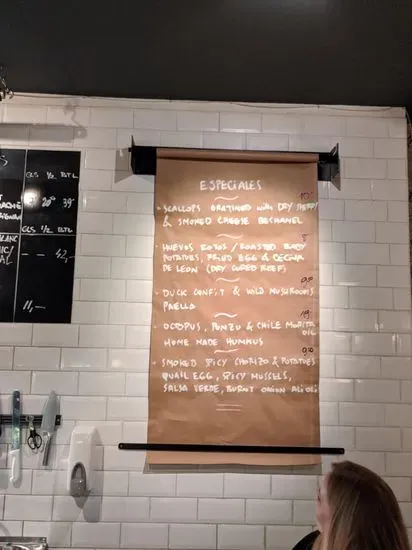 GLS ½ BTL
20⁻ 39⁻
GLS ½ BTL
-- -- 42,-
11,-
ESPECIALES
- SCALLOPS GRATINED WITH DRY SHERRY
& SMOKED CHEESE BECHAMEL
- HUEVOS ROTOS / ROASTED BABY
POTATOES, FRIED EGG & CECINA
DE LEON (DRY CURED BEEF)
- DUCK CONFIT & WILD MUSHROOMS
PAELLA
- OCTOPUS, PONZU & CHILE MORITA OIL
HOME MADE HUMMUS
- SMOKED SPICY CHORIZO & POTATOES
QUAIL EGG, SPICY MUSSELS,
SALSA VERDE, BURNT ONION ALIOLI